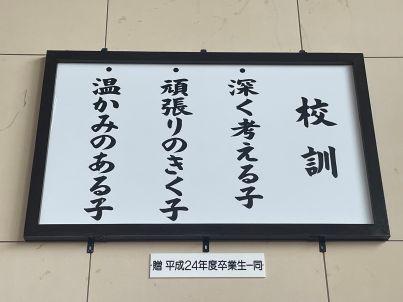 校訓
・深く考える子
・頑張りのきく子
・温かみのある子
贈 平成24年度卒業生一同